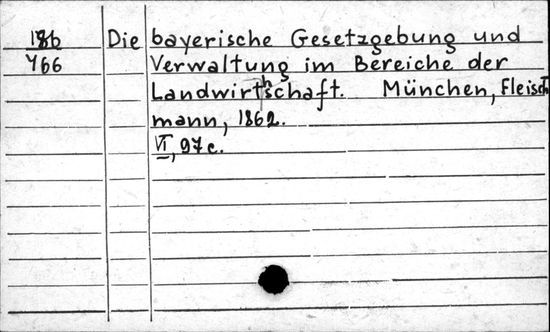 186 Die bayerische Gesetzgebung und
466 Verwaltung im Bereiche der
Landwirthschaft. München, Fleisch
mann, 1862.
VI, 97 с.